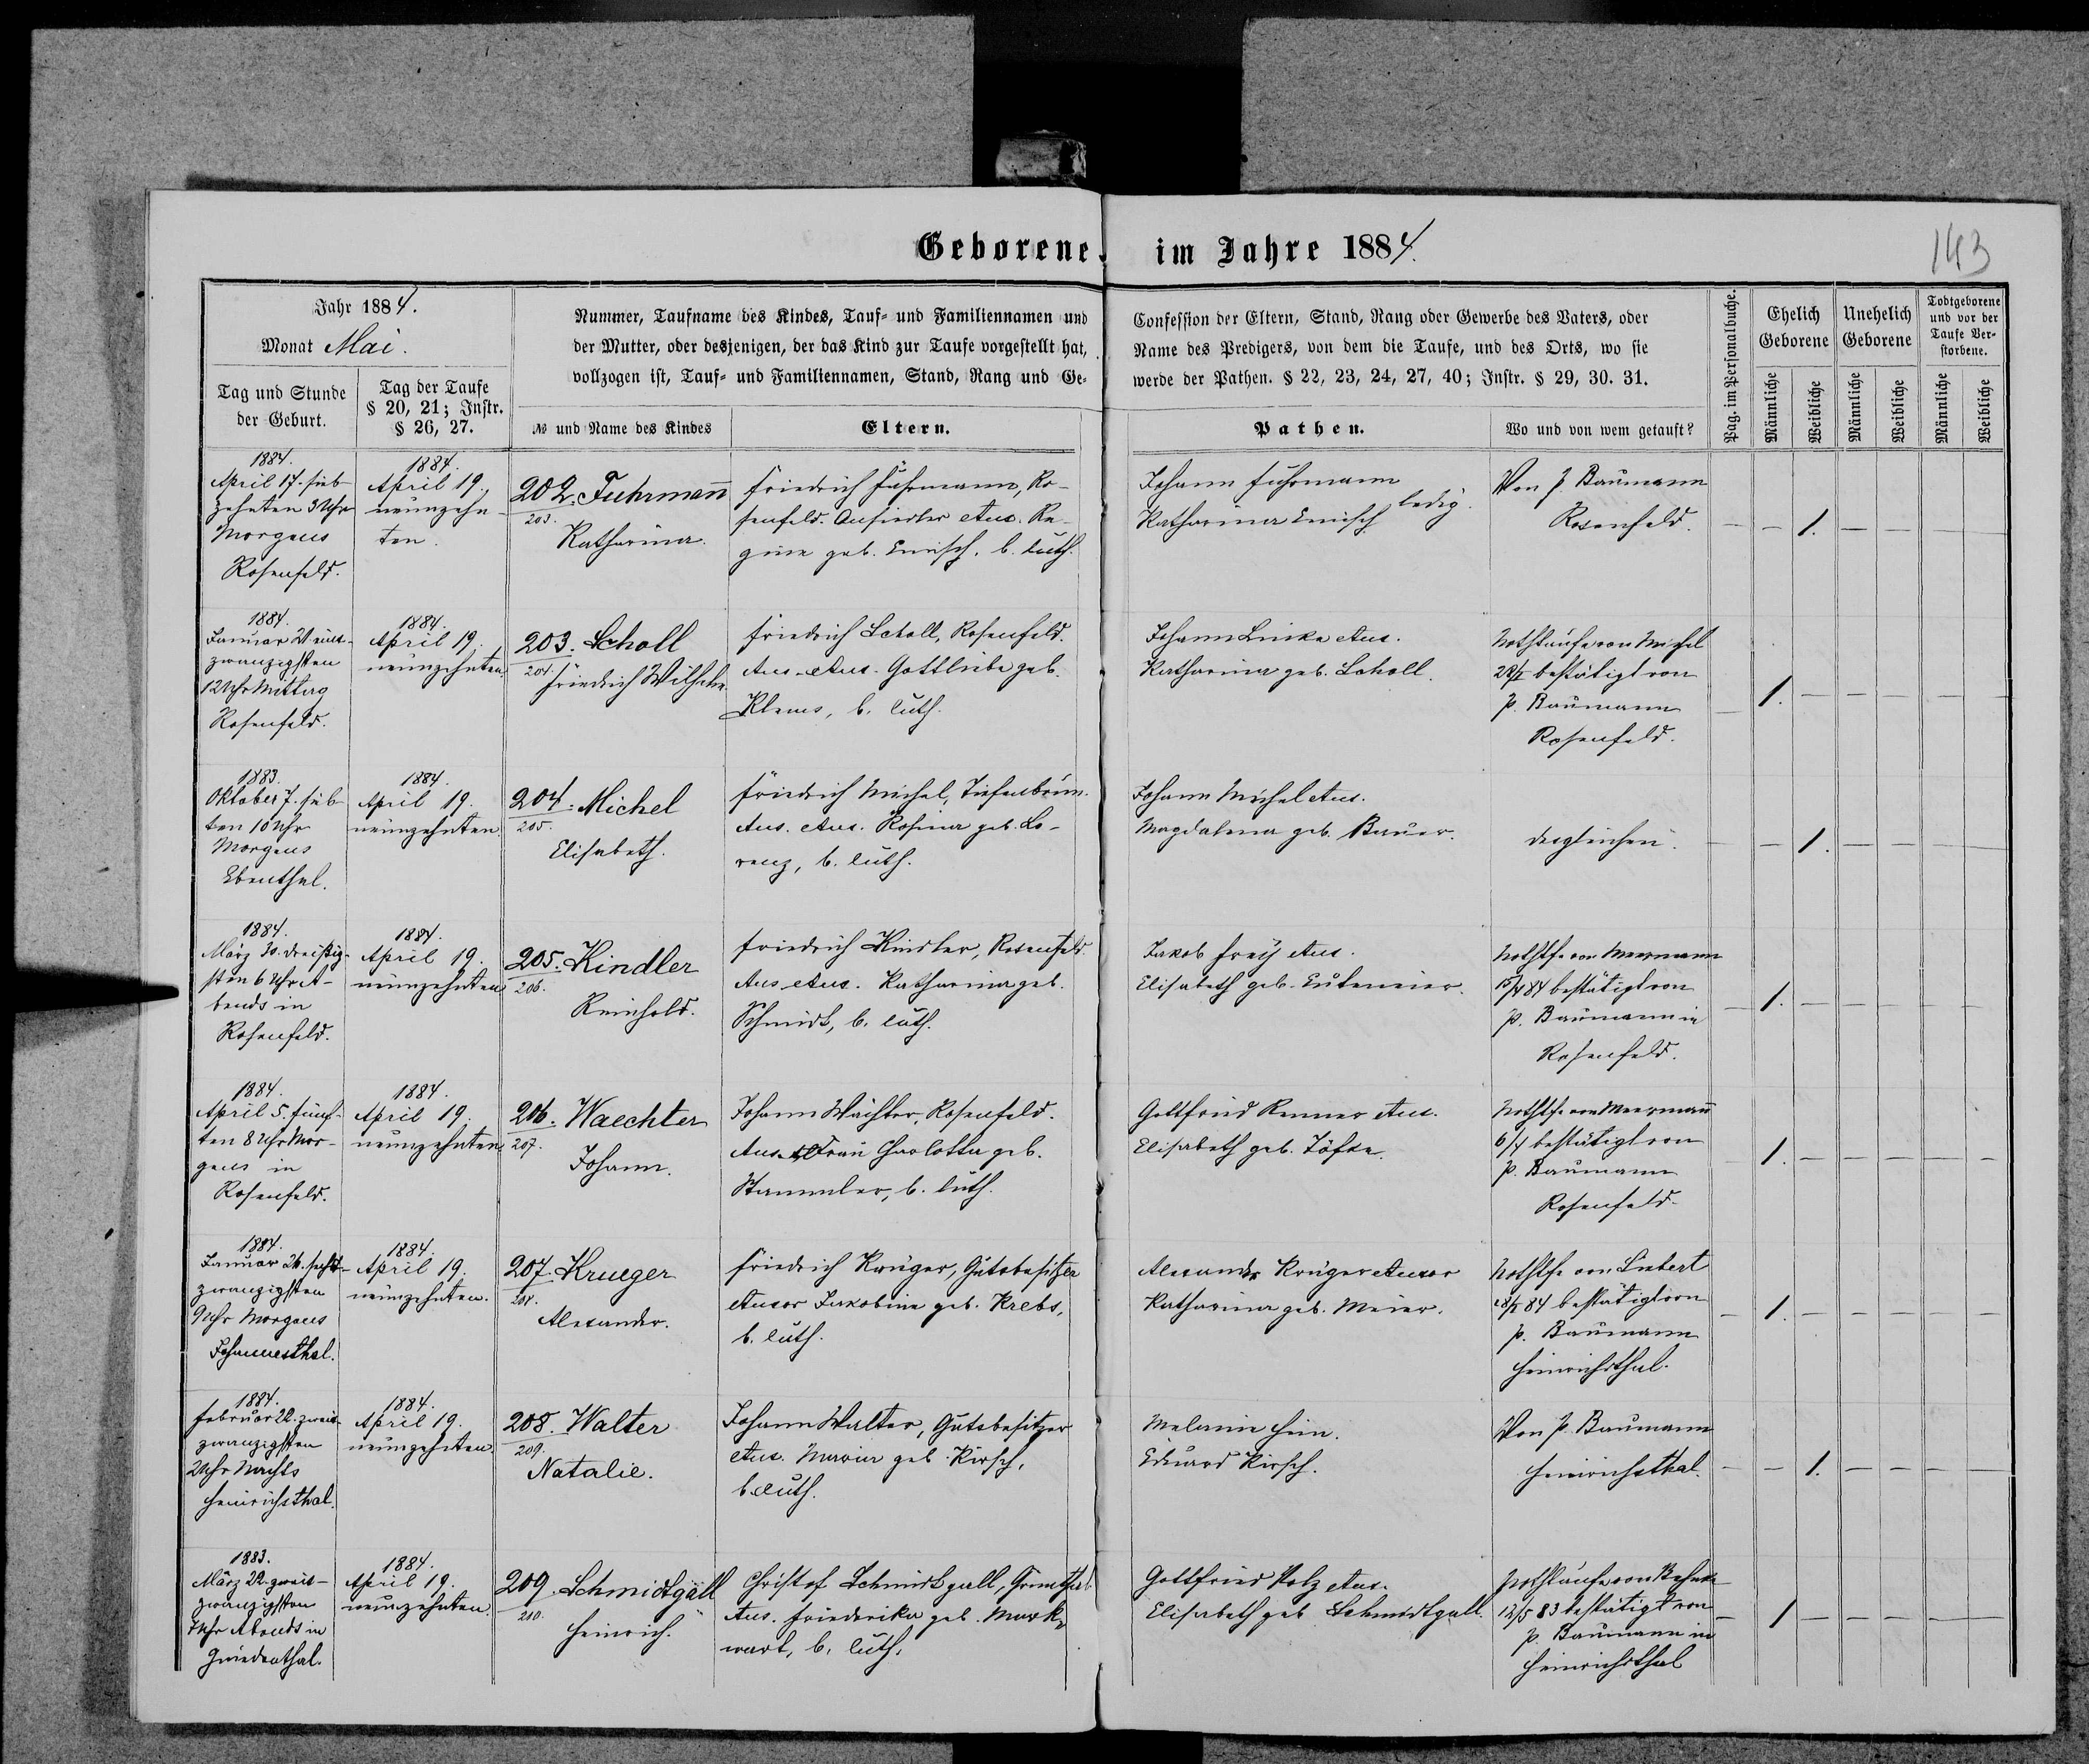 Geborene im Jahre 1884.
143
Jahr 1884.
Monat Mai.
Tag und Stunde
der Geburt.
Tag der Taufe
§ 20, 21; Instr.
§ 26, 27.
Nummer, Taufname des Kindes, Tauf- und Familiennamen und
der Mutter, oder desjenigen, der das Kind zur Taufe vorgestellt hat,
vollzogen ist, Tauf- und Familiennamen, Stand, Rang und Ge-
№ und Name des Kindes
Eltern.
Confession der Eltern, Stand, Rang oder Gewerbe des Vaters, oder
Name des Predigers, von dem die Taufe, und des Orts, wo sie
werde der Pathen. § 22, 23, 24, 27, 40; Instr. § 29, 30. 31.
Pathen.
Wo und von wem getauft?
Pag. im Personalbuche.
Ehelich
Geborene
Unehelich
Geborene
Todtgeborene
und vor der
Taufe Ver-
storbene.
Männliche
Weibliche
Männliche
Weibliche
Männliche
Weibliche
1884.
April 17. sieb-
zehnten 3 Uhr
Morgens
Rosenfeld.
1884.
April 19.
neunzehn-
ten.
202. Fuhrmann
203.
Katharina.
Friedrich Fuhrmann, Ro-
senfeld. Ansiedler etux. Re-
gine geb. , b. luth.
Johann Fuhrmann
Katharina ledig.
Von P. Baumann
Rosenfeld.
1.
1884.
Januar 21. ein-
zwanzigsten
12 Uhr Mittag
Rosenfeld.
1884.
April 19.
neunzehnten.
203. Scholl
204.
Friedrich Wilhelm.
Friedrich Scholl, Rosenfeld.
Ans. etux. Gottliebe geb.
Klems, b. luth.
Johann Linke etux.
Katharina geb. Scholl.
Nothtaufe von Michel
bestätigt von
P. Baumann
Rosenfeld.
1.
1883.
Oktober 7. sieb-
ten 10 Uhr
Morgens
Ebenthal.
1884.
April 19.
neunzehnten.
204. Michel
205.
Elisabeth.
Friedrich Michel, Tiefenbrun.
Ans. etux. Rosina geb. Lo-
renz, b. luth.
Johann Michel etux.
Magdalena geb. Bauer.
desgleichen.
1.
1884.
März 30. dreißig-
sten 6 Uhr A-
bends in
Rosenfeld.
1884.
April 19.
neunzehnten
205. Kindler
206.
Reinhold.
Friedrich Kindler, Rosenfeld.
Ans. etux. Katharina geb.
Schmidt, b. luth.
Jakob Frey etux.
Elisabeth geb.
Nothtfe von Meermann
15/4 84 bestätigt von
P. Baumann in
Rosenfeld.
1.
1884.
April 5. fünf-
ten 8 Uhr Mor-
gens in
Rosenfeld.
1884.
April 19.
neunzehnten
206. Waechter
207.
Johann.
Johann Wächter, Rosenfeld.
Ans. Frau Charlotta geb.
Stammler, b. luth.
Gottfried Renner etux.
Elisabeth geb.
Nothtfe von Meermann
6/4 bestätigt von
P. Baumann
Rosenfeld.
1.
1884.
Januar 26. sechs-
zwanzigsten
9 Uhr Morgens
Johannesthal.
1884.
April 19.
neunzehnten.
207. Krueger
208.
Alexander.
Friedrich Krüger, Gutsbesitzer
etuxor Jakobine geb. Krebs,
b. luth.
Alexander Krüger etuxor
Katharina geb. Meier.
Nothtfe von Liebert
84 bestätigt von
P. Baumann
Heinrichsthal.
1.
1884.
Februar 22. zwei-
zwanzigsten
2 Uhr Nachts
Heinrichsthal.
1884.
April 19.
neunzehnten.
208. Walter
209.
Natalie.
Johann Walter, Gutsbesitzer
etux. Maria geb. Kirsch,
b. luth.
Melanie Hein.
Eduard Kirsch.
Von P. Baumann
Heinrichsthal.
1.
1883.
März 22. zwei-
zwanzigsten
7 Uhr Abends in
1884.
April 19.
neunzehnten.
209. Schmidtgall
210.
Heinrich.
Christof Schmidtgall,
Ans. Friederika geb. Mark-
wart, b. luth.
Gottfried Volz etux.
Elisabeth geb. Schmidtgall.
Nothtaufe von
12/5 83 bestätigt von
P. Baumann in
Heinrichsthal
1